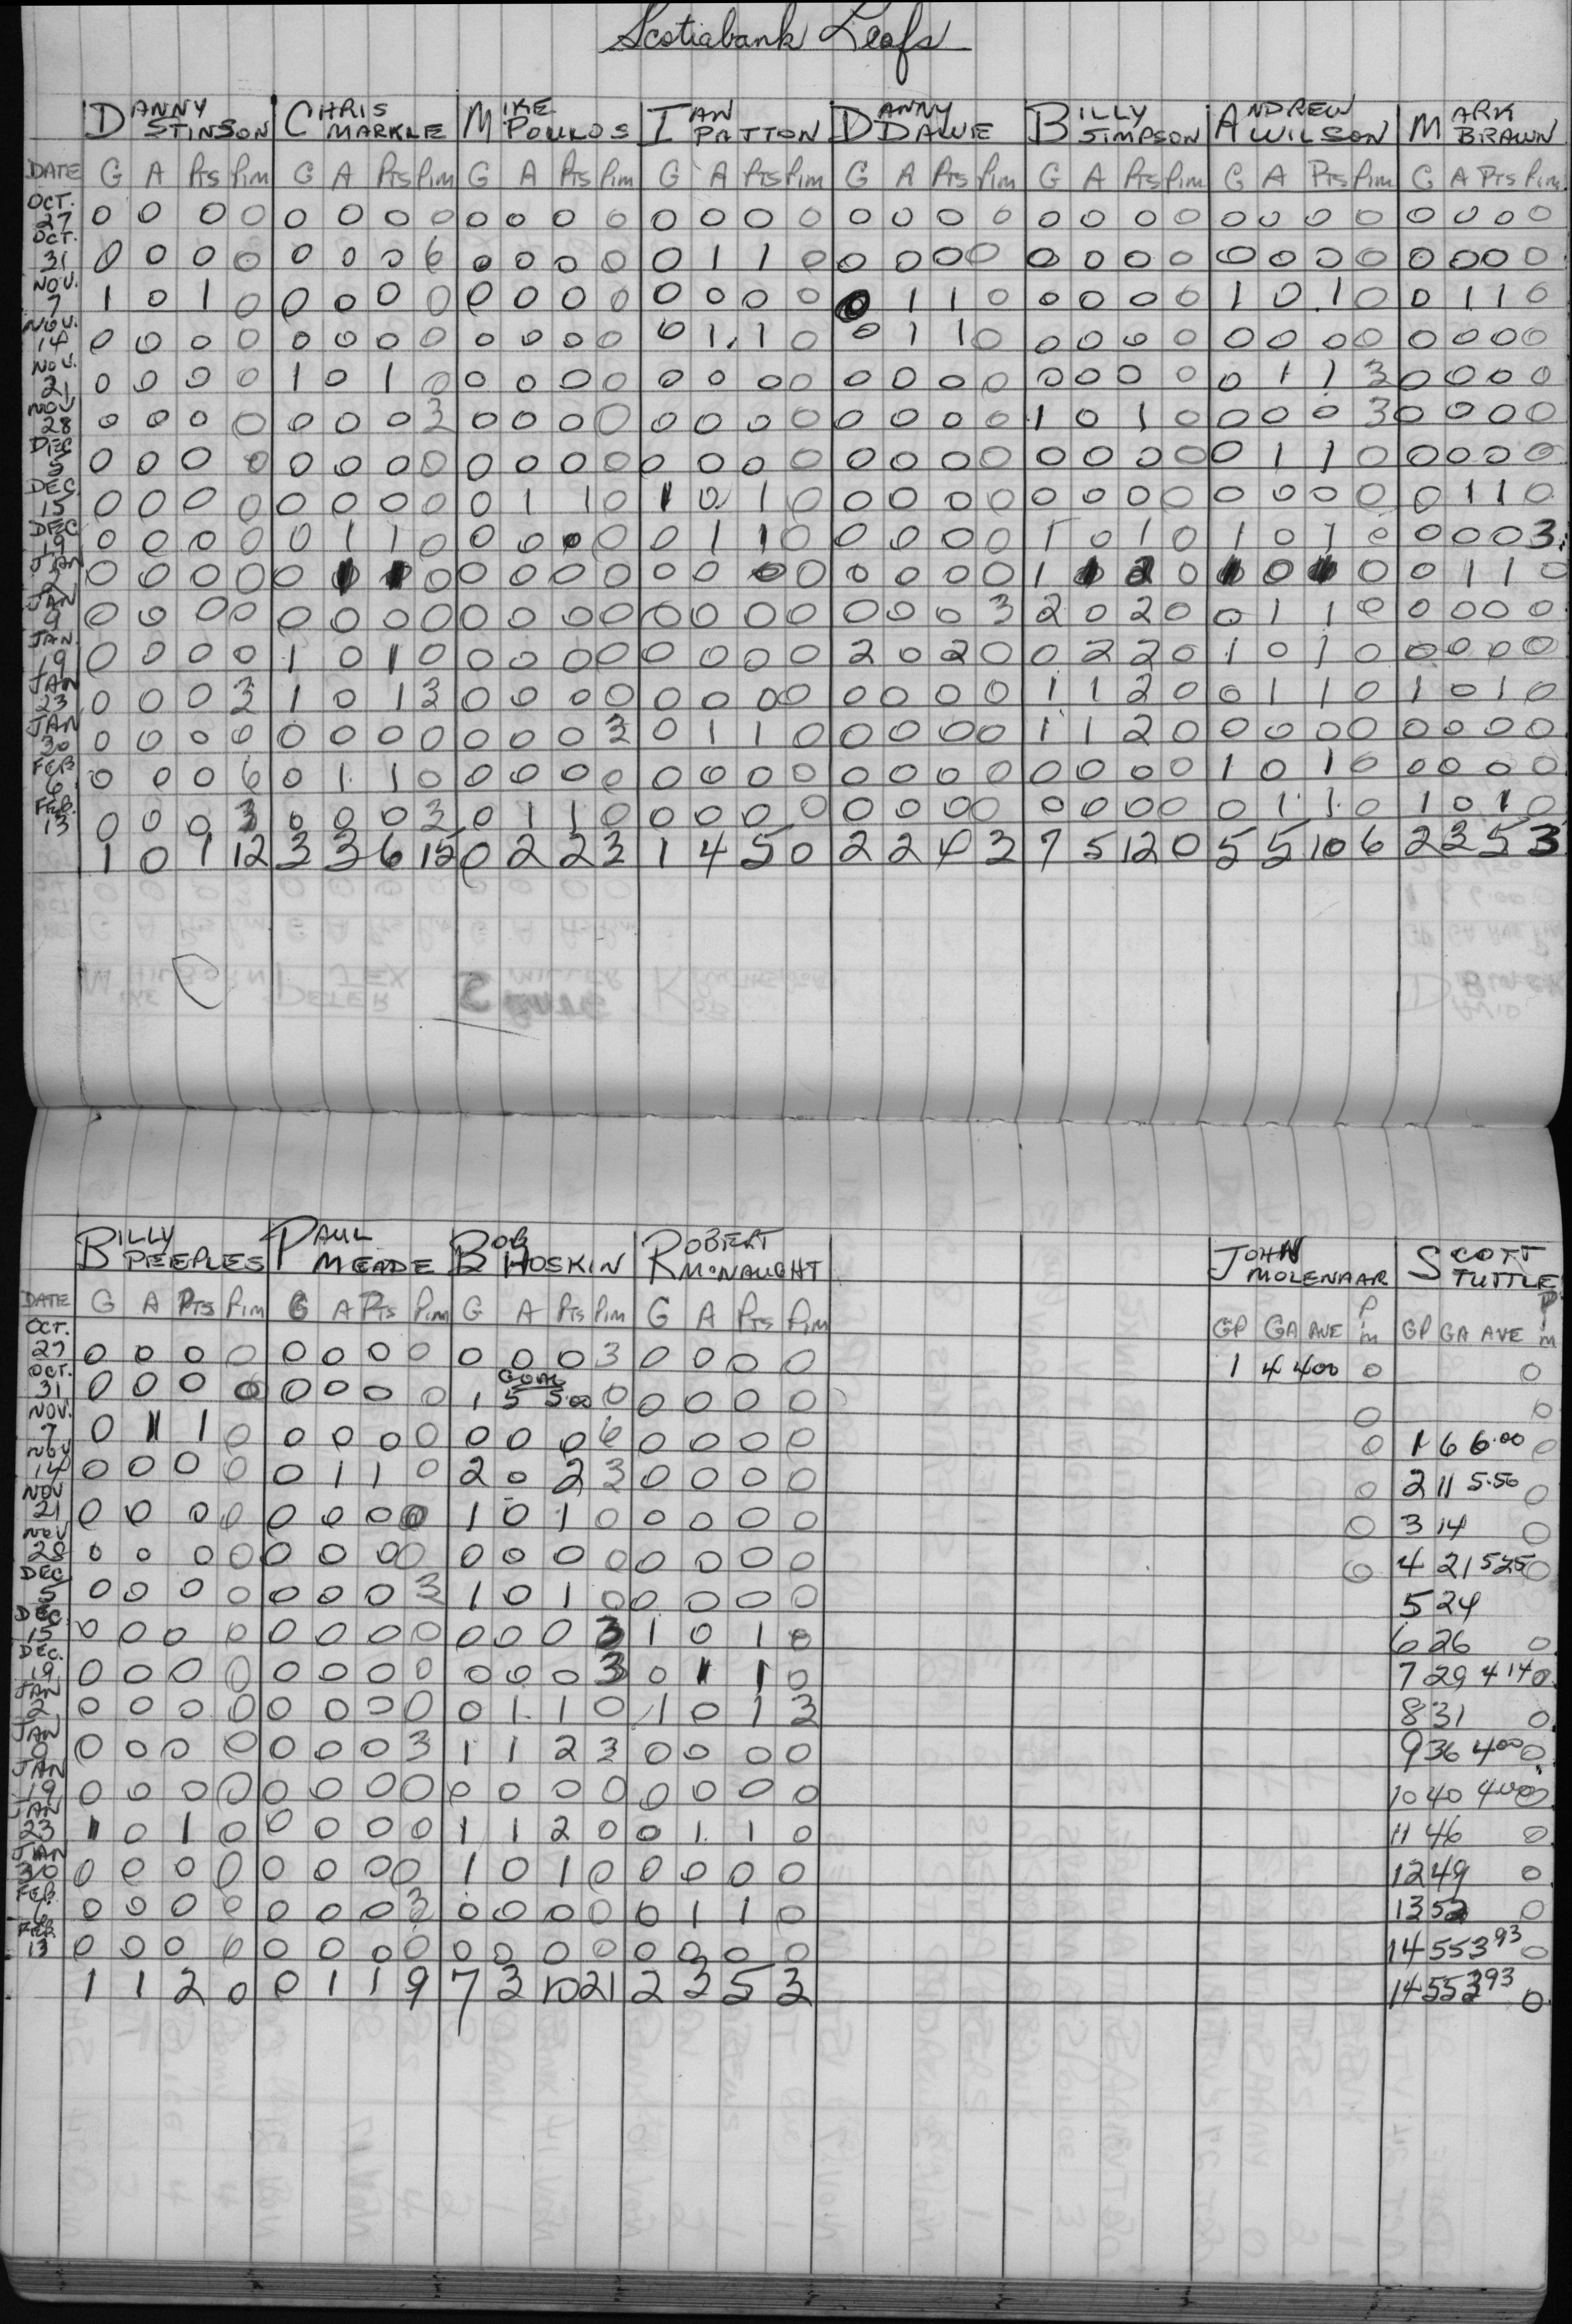 Scotiabank Leafs
DANNY STINSON CHRIS MARKLE MIKE POULOS IAN PATTON DANNY DAWE BILLY SIMPSON ANDREW WILSON MARK BRAWN
DATE G A Pts Pim G A Pts Pim G A Pts Pim G A Pts Pim G A Pts Pim G A Pts Pim G A Pts Pim G A Pts Pim
OCT. 27 0 0 0 0 0 0 0 0 0 0 0 0 0 0 0 0 0 0 0 0 0 0 0 0 0 0 0 0 0 0 0 0
OCT. 31 0 0 0 0 0 0 0 6 0 0 0 0 0 1 1 0 0 0 0 0 0 0 0 0 0 0 0 0 0 0 0 0
NOV. 7 1 0 1 0 0 0 0 0 0 0 0 0 0 0 0 0 0 1 1 0 0 0 0 0 1 0 1 0 0 1 1 0
NOV. 14 0 0 0 0 0 0 0 0 0 0 0 0 0 1 1 0 0 1 1 0 0 0 0 0 0 0 0 0 0 0 0 0
NOV. 21 0 0 0 0 1 0 1 0 0 0 0 0 0 0 0 0 0 0 0 0 0 0 0 0 0 1 1 3 0 0 0 0
NOV 28 0 0 0 0 0 0 0 3 0 0 0 0 0 0 0 0 0 0 0 0 1 0 1 0 0 0 0 3 0 0 0 0
DEC 5 0 0 0 0 0 0 0 0 0 0 0 0 0 0 0 0 0 0 0 0 0 0 0 0 0 1 1 0 0 0 0 0
DEC 15 0 0 0 0 0 0 0 0 0 1 1 0 1 0 1 0 0 0 0 0 0 0 0 0 0 0 0 0 0 1 1 0
DEC 19 0 0 0 0 0 1 1 0 0 0 0 0 0 1 1 0 0 0 0 0 1 0 1 0 1 0 1 0 0 0 0 3
JAN 2 0 0 0 0 0 0 0 0 0 0 0 0 0 0 0 0 0 0 1 2 0 0 0 0 1 1 0
JAN 9 0 0 0 0 0 0 0 0 0 0 0 0 0 0 0 0 0 0 0 3 2 0 2 0 0 1 1 0 0 0 0 0
JAN. 19 0 0 0 0 1 0 1 0 0 0 0 0 0 0 0 0 2 0 2 0 0 2 2 0 1 0 1 0 0 0 0 0
JAN 23 0 0 0 3 1 0 1 3 0 0 0 0 0 0 0 0 0 0 0 0 1 1 2 0 0 1 1 0 1 0 1 0
JAN 30 0 0 0 0 0 0 0 0 0 0 0 3 0 1 1 0 0 0 0 0 1 1 2 0 0 0 0 0 0 0 0 0
FEB 6 0 0 0 6 0 1 1 0 0 0 0 0 0 0 0 0 0 0 0 0 0 0 0 0 1 0 1 0 0 0 0 0
FEB. 13 0 0 0 3 0 0 0 3 0 1 1 0 0 0 0 0 0 0 0 0 0 0 0 0 0 1 1 0 1 0 1 0
1 0 1 12 3 3 6 15 0 2 2 3 1 4 5 0 2 2 4 3 7 5 12 0 5 5 10 6 2 3 5 3
BILLY PEEPLES PAUL MEADE BOB HOSKIN ROBERT McNAUGHT JOHN MOLENAAR SCOTT TUTTLE
DATE G A Pts Pim G A Pts Pim G A Pts Pim G A Pts Pim GP GA AVE Pim GP GA AVE Pim
OCT. 27 0 0 0 0 0 0 0 0 0 0 0 3 0 0 0 0 1 4 4.00 0 0
OCT. 31 0 0 0 0 0 0 0 0 GOAL 1 5 5.00 0 0 0 0 0 0 0
NOV. 7 0 1 1 0 0 0 0 0 0 0 0 6 0 0 0 0 0 1 6 6.00 0
NOV 14 0 0 0 0 0 1 1 0 2 0 2 3 0 0 0 0 0 2 11 5.50 0
NOV 21 0 0 0 0 0 0 0 0 1 0 1 0 0 0 0 0 0 3 14 0
NOV 28 0 0 0 0 0 0 0 0 0 0 0 0 0 0 0 0 0 4 21 5.25 0
DEC 5 0 0 0 0 0 0 0 3 1 0 1 0 0 0 0 0 5 24
DEC. 15 0 0 0 0 0 0 0 0 0 0 0 3 1 0 1 0 6 26 0
DEC. 19 0 0 0 0 0 0 0 0 0 0 0 3 0 1 1 0 7 29 4 14 0
JAN 2 0 0 0 0 0 0 0 0 0 1 1 0 1 0 1 3 8 31 0
JAN 9 0 0 0 0 0 0 0 3 1 1 2 3 0 0 0 0 9 36 4.00 0
JAN 19 0 0 0 0 0 0 0 0 0 0 0 0 0 0 0 0 10 40 4.00 0
JAN 23 1 0 1 0 0 0 0 0 1 1 2 0 0 1 1 0 11 46 0
JAN 30 0 0 0 0 0 0 0 0 1 0 1 0 0 0 0 0 12 49 0
FEB. 6 0 0 0 0 0 0 0 3 0 0 0 0 0 1 1 0 13 52 0
FEB. 13 0 0 0 0 0 0 0 0 0 0 0 0 0 0 0 0 14 55 3 93 0
1 1 2 0 0 1 1 9 7 3 10 21 2 3 5 3 14 55 3 93 0